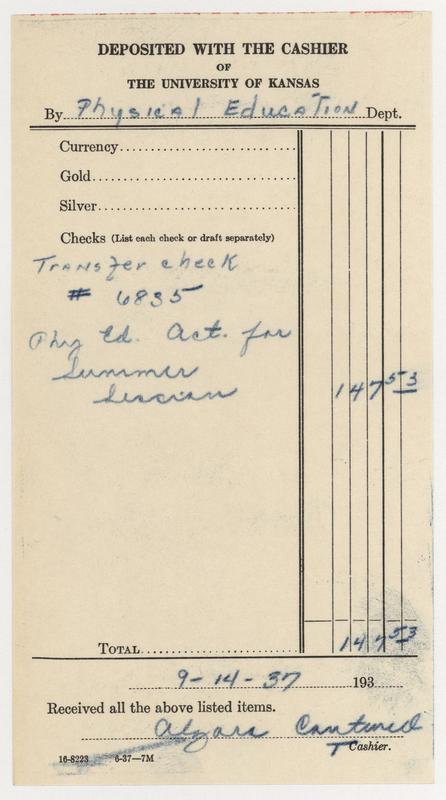 DEPOSITED WITH THE CASHIER
OF
THE UNIVERSITY OF KANSAS
By Physical Education Dept.
Currency
Gold
Silver
Checks (List each check or draft separately)
Transfer check
# 6835
Phy Ed. Act. for
Summer
Session 147 53
TOTAL 147 53
9-14-37 193
Received all the above listed items.
Cashier.
16-8223 6-37—7M